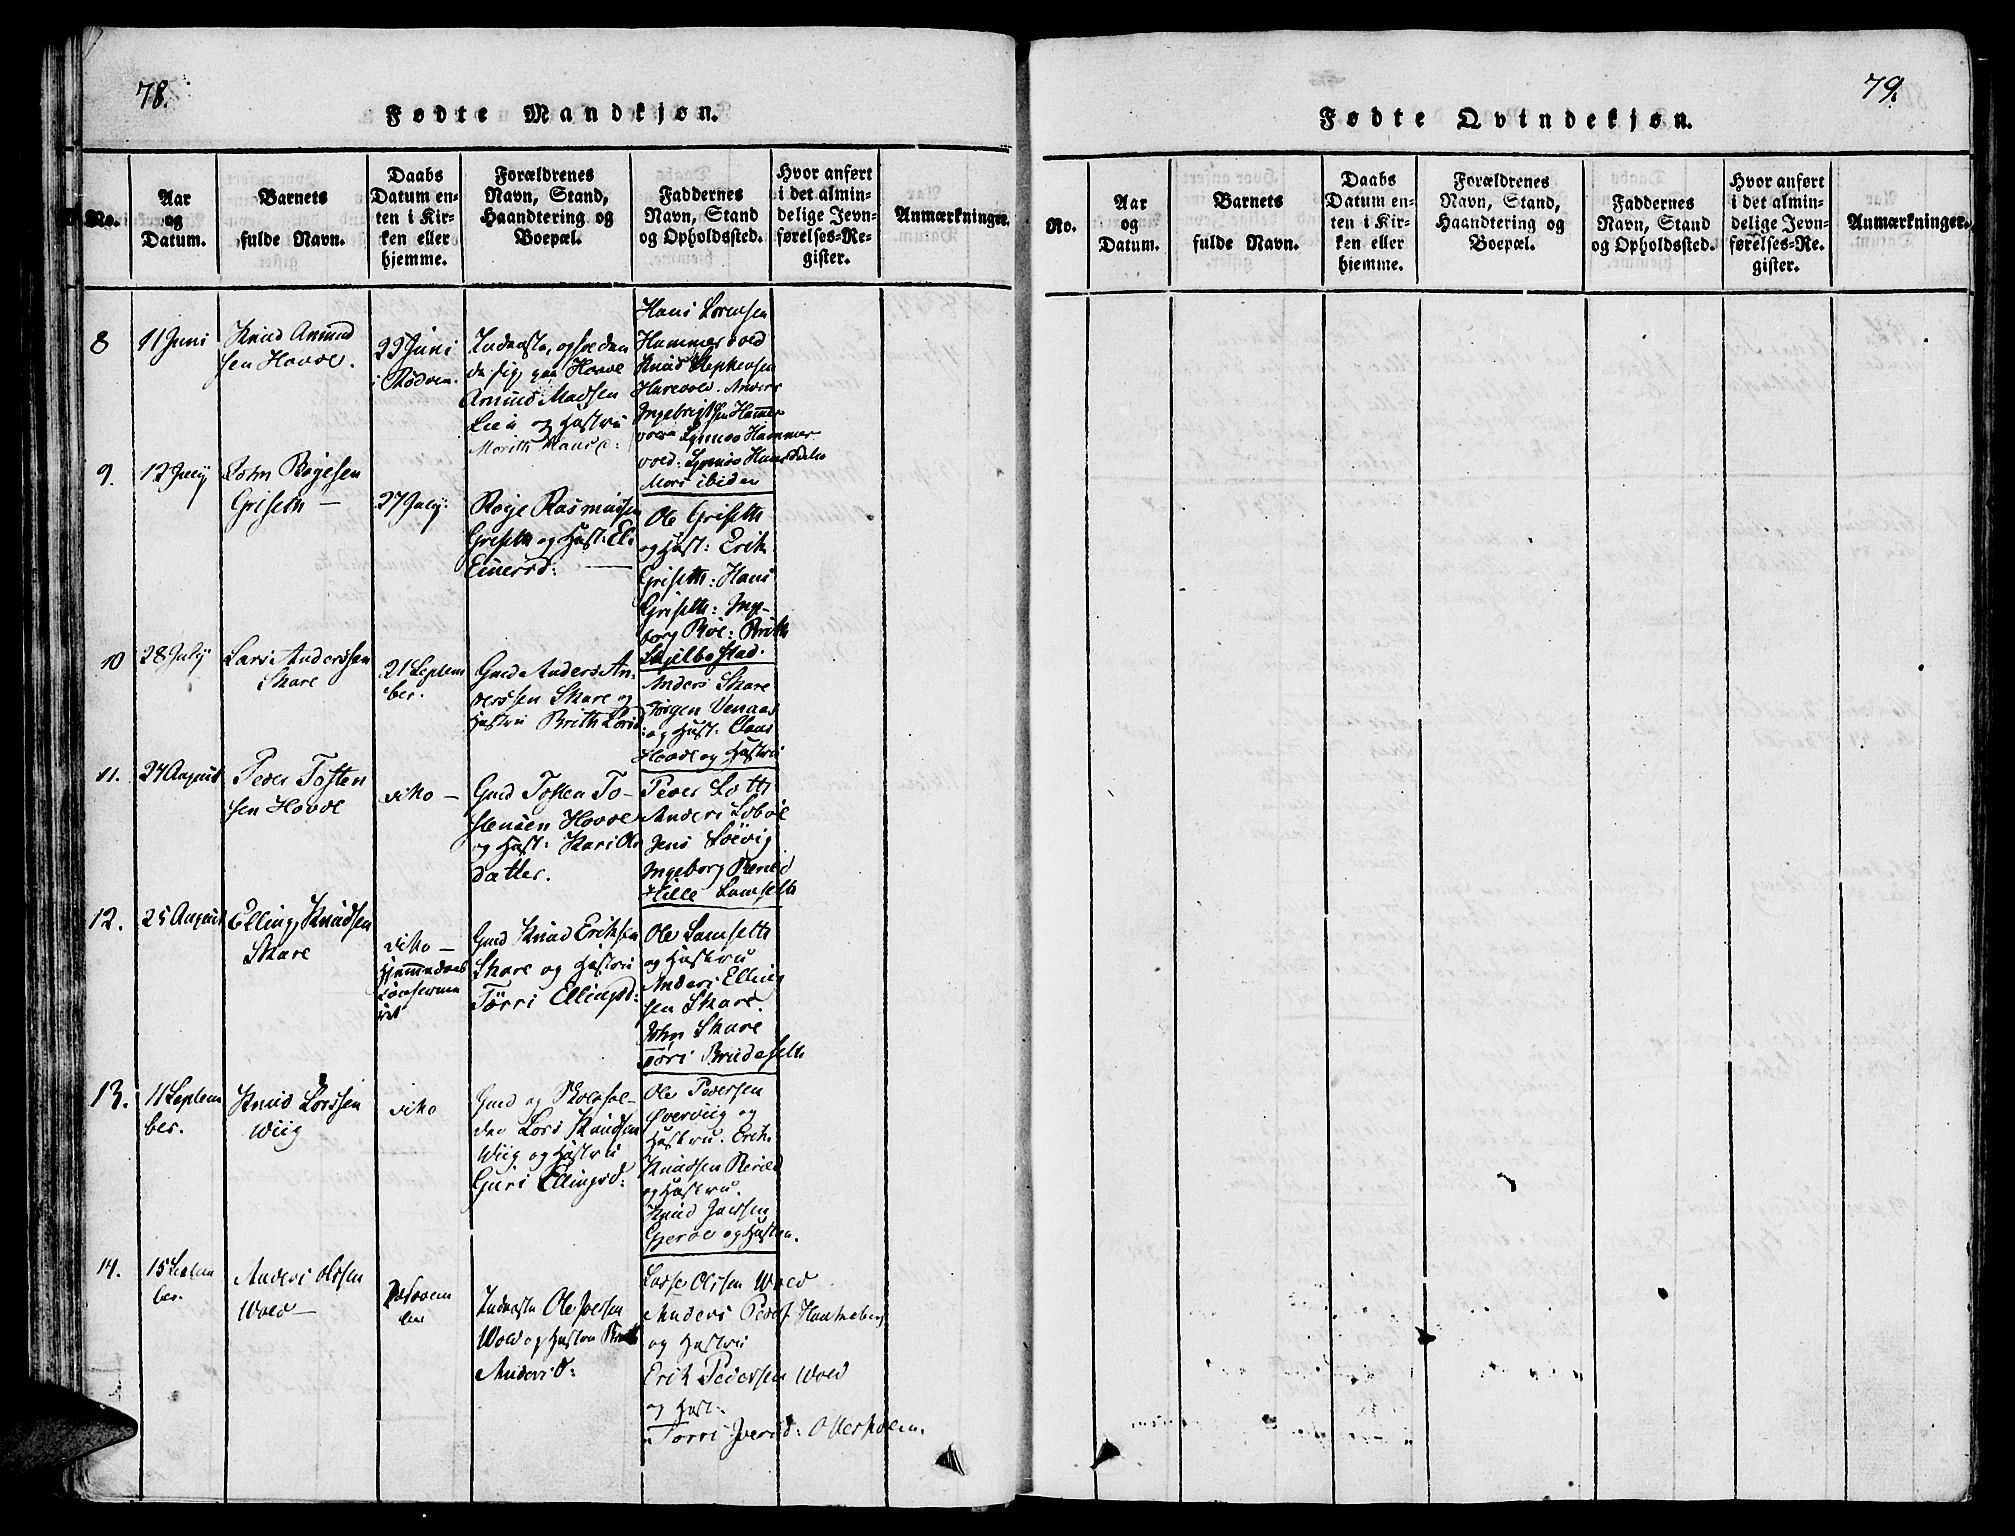 78.
Fødte Mandkjøn.
No.
Aar
og
Datum.
Barnets
fulde Navn.
Daabs
Datum en-
ten i Kir-
ken eller
hjemme.
Forældrenes
Navn, Stand,
Haandtering og
Boepæl.
Faddernes
Navn, Stand
og Opholdssted.
Hvor anført
i det almin-
delige Jevn-
førelses-Re-
gister.
Anmærkninger.
8
11 Juni
Knud Amund
sen Hovde.
22 Juni
i Rødven.
Inderste, opholden
de sig paa Hovde
Amund Madsen
Lien og Hustru
Marith Hansd:
Hans Lorensen
Hammervold
Knud Stephensen
Harevold. Anders
Ingebrigtsen Hammer
vold
Hammer
vold:
Mari ibiden
9.
12 July
John Rogesen
Griseth —
27 July:
Roge Rasmussen
Griseth og Hust: Eli
Einersd:
Ole Griseth
og Hust: Erik
Griseth: Hans
Griseth: Inge-
borg Röe: Brith
Skjelbostad.
10
28 July
Lars Anderssen
Skare
21 Septem
ber.
Gmd Anders An-
derssen Skare og
Hustru Brith Larsd
Anders Skare
Jörgen Venaas
og Hust: Claus
Hovde og Hustru
11.
24 August
Peder Tosten
sen Hovde
dito —
Gmd Tosten To-
stensen Hovde
og Hust: Kari Ols
datter.
Peder Sæth
Anders
Jens Soevig
Ingeborg Reneld
Hille Samseth
12.
25 August
Elling Knudsen
Skare
dito —
Hjemmedaab
Confermee
ret
Gmd Knud Eriksen
Skare og Hustru
Törri Ellingsd:
Ole Samseth
og Hustru
Anders Elling
sen Skare.
John Skare
Töri Brudeseth
13.
11 Septem
ber.
Knud Larssen
Wiig
dito
Gmd og
der Lars Knudsen
Wiig og Hustru
Guri Ellingsd:
Ole Pedersen
Øverviig og
Hustru. Erik
Knudsen Reneld
og Hustru.
Knud
Gjerde og Hustru.
14.
15 Septem
ber.
Anders Olssen
Wold —
Novem
ber
Inderste Ole Iversen
Wold og Hustru Brith
Andersd:
Lasse Olssen Wold
Anders Peders
og Hustru
Erik Pedersen Wold
og Hust:
Törri Iversd: Otterholm.
79.
Fødte Qvindekjøn.
No.
Aar
og
Datum.
Barnets
fulde Navn.
Daabs
Datum en-
ten i Kir-
ken eller
hjemme.
Forældrenes
Navn, Stand,
Haandtering og
Boepæl.
Faddernes
Navn, Stand
og Opholdssted.
Hvor anført
i det almin-
delige Jevn-
førelses-Re-
gister.
Anmærkninger.